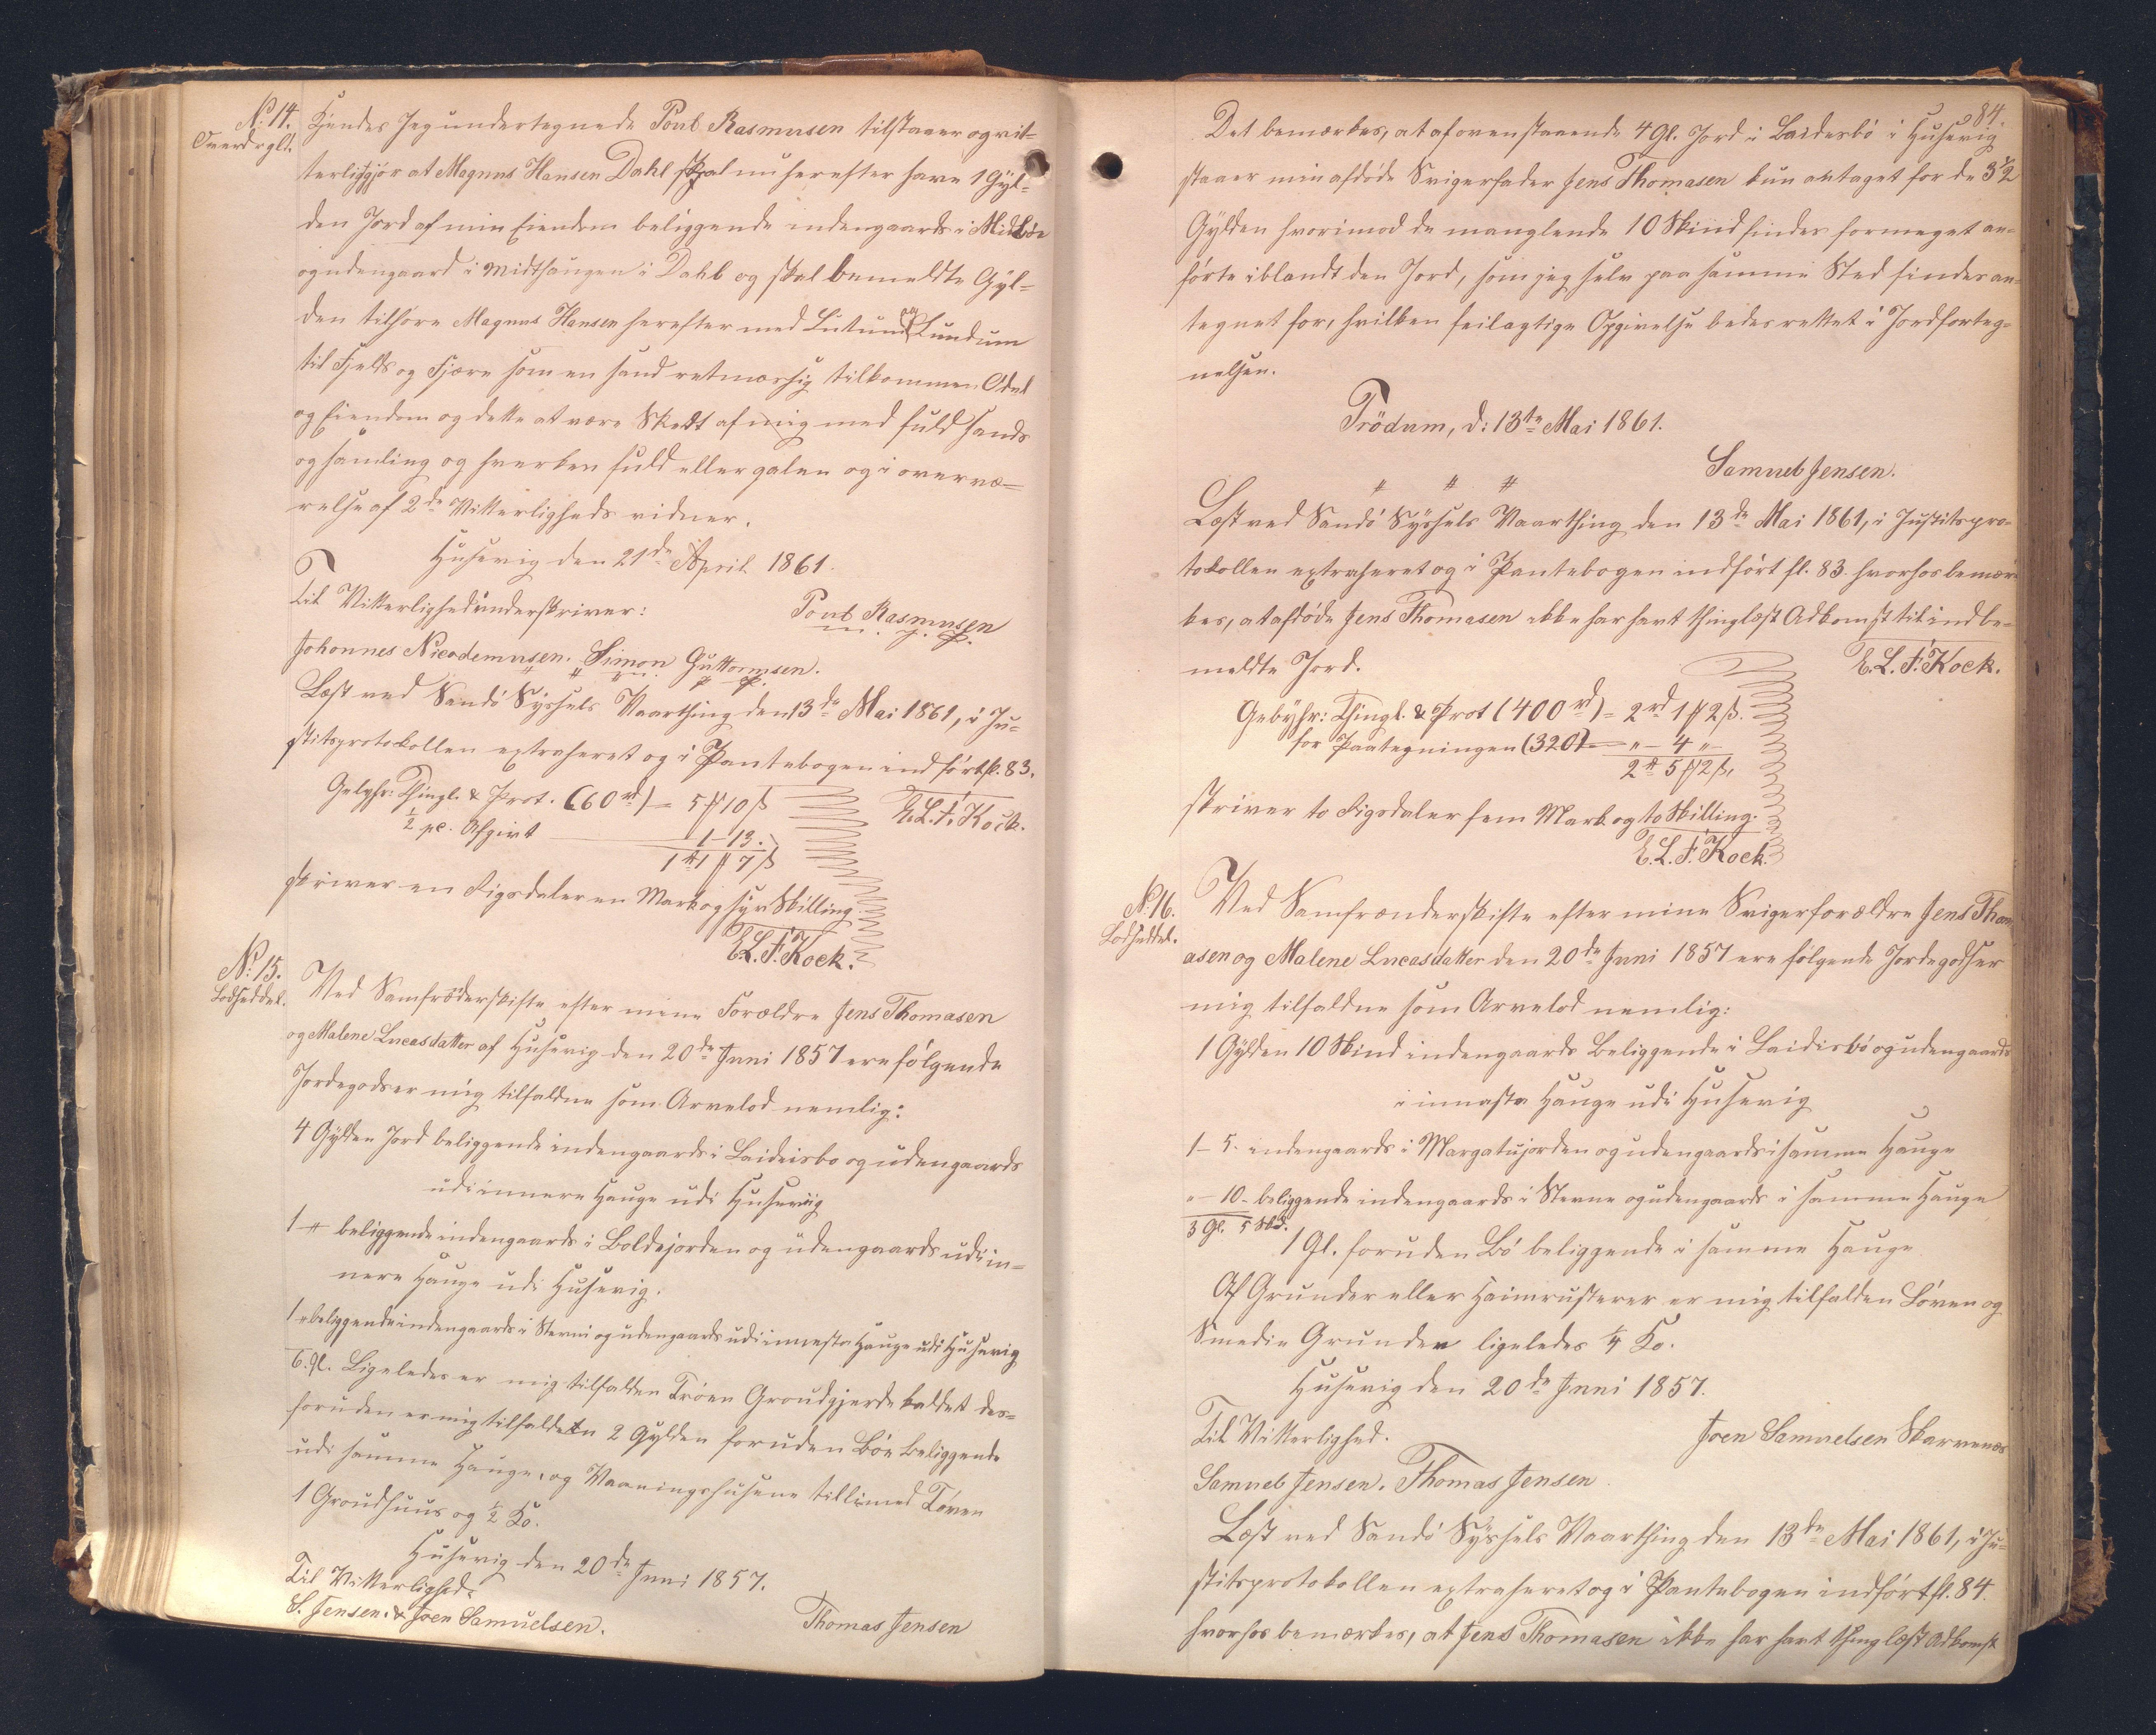 No. 14.
Overdrgl.
Kjendes Jeg undertegnede Poul Rasmusen tilstaaer og vit-
terligtgjør at Magnus Hansen Dahl skal nu herefter have 1 Gyl-
den Jord af min Eiendom beliggende indengaards i Midtbøe
og udengaard i Midthaugen i Dahl og skal bemeldte Gyl-
den tilhøre Magnus Hansen herefter med Lutum og Lundum
til Fjelds og Fjære som en sand retmæssig tilkommen Odel
og Eiendom og dette at være Skedt af mig med fuld Sands
og samling og hverken fuld eller galen og i overvæ-
relse af 2de Vitterligheds vidner.
Husevig den 21de April 1861.
Til Vitterlighed underskriver:
Poul Rasmusen
m. f. P.
Johannes Nicodemusen. Simon Guttormsen.
Læst ved Sandö Syssels Vaarthing den 13de Mai 1861, i Ju-
stitsprotokollen extraheret og i Pantebogen indført fl. 83.
Gebyhr: Thingl. & Prot. (60 rd) = 5 # 10 ß
E. L. F. Kock.
½ pc. Afgivt 1 – 13.
1 rd 1 # 7 ß
skriver en Rigsdaler en Mark og syv Skilling.
E. L. F. Kock.
No. 15.
Lodseddel.
Ved Samfröderskifte efter mine Forældre Jens Thomasen
og Malene Lucasdatter af Husevig den 20de Juni 1857 ere følgende
Jordegodser mig tilfaldne som Arvelod nemlig:
4 Gylden Jord beliggende indengaards i Leideisbo og udengaards
udi innere Hauge udi Husevig
1 – " beliggende indengaards i Boldejorden og udengaards udi in-
nere Hauge udi Husevig.
1 " beliggende indengaards i Stevni og udengaards udi innesta Hauge udi Husevig
6. gl. Ligeledes er mig tilfalden Tróen Groudgjerde kaldet des-
foruden er mig tilfalden 2 Gylden foruden Bøe beliggende
udi samme Hauge, og Vaaningshusene tillimed Tóven
1 Groudhuus og ½ Ko.
Husevig den 20de Juni 1857.
Til Vitterlighed:
S. Jensen. & Joen Samuelsen.
Thomas Jensen
84.
Det bemærkes, at af ovenstaaende 4 Gl. Jord i Laidesbö i Husevig
staaer min afdøde Svigerfader Jens Thomasen kun antaget for de 3½
Gylden hvorimod de manglende 10 Skind findes formeget an-
førte iblandt den Jord, som jeg selv paa samme Sted findes an-
tegnet for, hvilken feilagtige Opgivelse bedes rettet i Jordforteg-
nelsen.
Trödum, d: 13te Mai 1861.
Samuel Jensen.
" " "
Læst ved Sandö Syssels Vaarthing den 13de Mai 1861, i Justitspro-
tokollen extraheret og i Pantebogen indført fl. 83. hvorhos bemær-
kes, at afdöde Jens Thomasen ikke har havt thinglæst Adkomst til indbe-
meldte Jord.
E. L. F. Kock.
Gebyhr: Thingl. & Prot (400 rd) = 2 rd 1 # 2 ß.
for Paategningen (320) = " – 4 " –
2 rd 5 # 2 ß,
skriver to Rigsdaler fem Mark og to Skilling.
E. L. F. Kock.
No. 16.
Lodseddel.
Ved Samfrænderskifte efter mine Svigerforældre Jens Thom
asen og Malene Lucasdatter den 20de Juni 1857 ere følgende Jordegodser
mig tilfaldne som Arvelod nemlig:
1 Gylden 10 Skind indengaards beliggende i Laidisbö og udengaards
i innasta Hauge udi Husevig
1 – 5. indengaards i Margatujorden og udengaards i samme Hauge
" – 10 – beliggende indengaards i Stevne og udengaards i samme Hauge
3 Gl. 5 Skd.
1 Gl. foruden Bö beliggende i samme Hauge
Af Grunder eller Heimrusterer er mig tilfalden Tóven og
Smedie Grunden ligeledes ¼ Ko.
Husevig den 20de Juni 1857.
Til Vitterlighed.
Joen Samuelsen Skarvenes
Samuel Jensen. Thomas Jensen
Læst ved Sandö Syssels Vaarthing den 13de Mai 1861, i Ju-
stitsprotokollen extraheret og i Pantebogen indført fl. 84.
hvorhos bemærkes, at Jens Thomasen ikke har havt thinglæst Adkomst